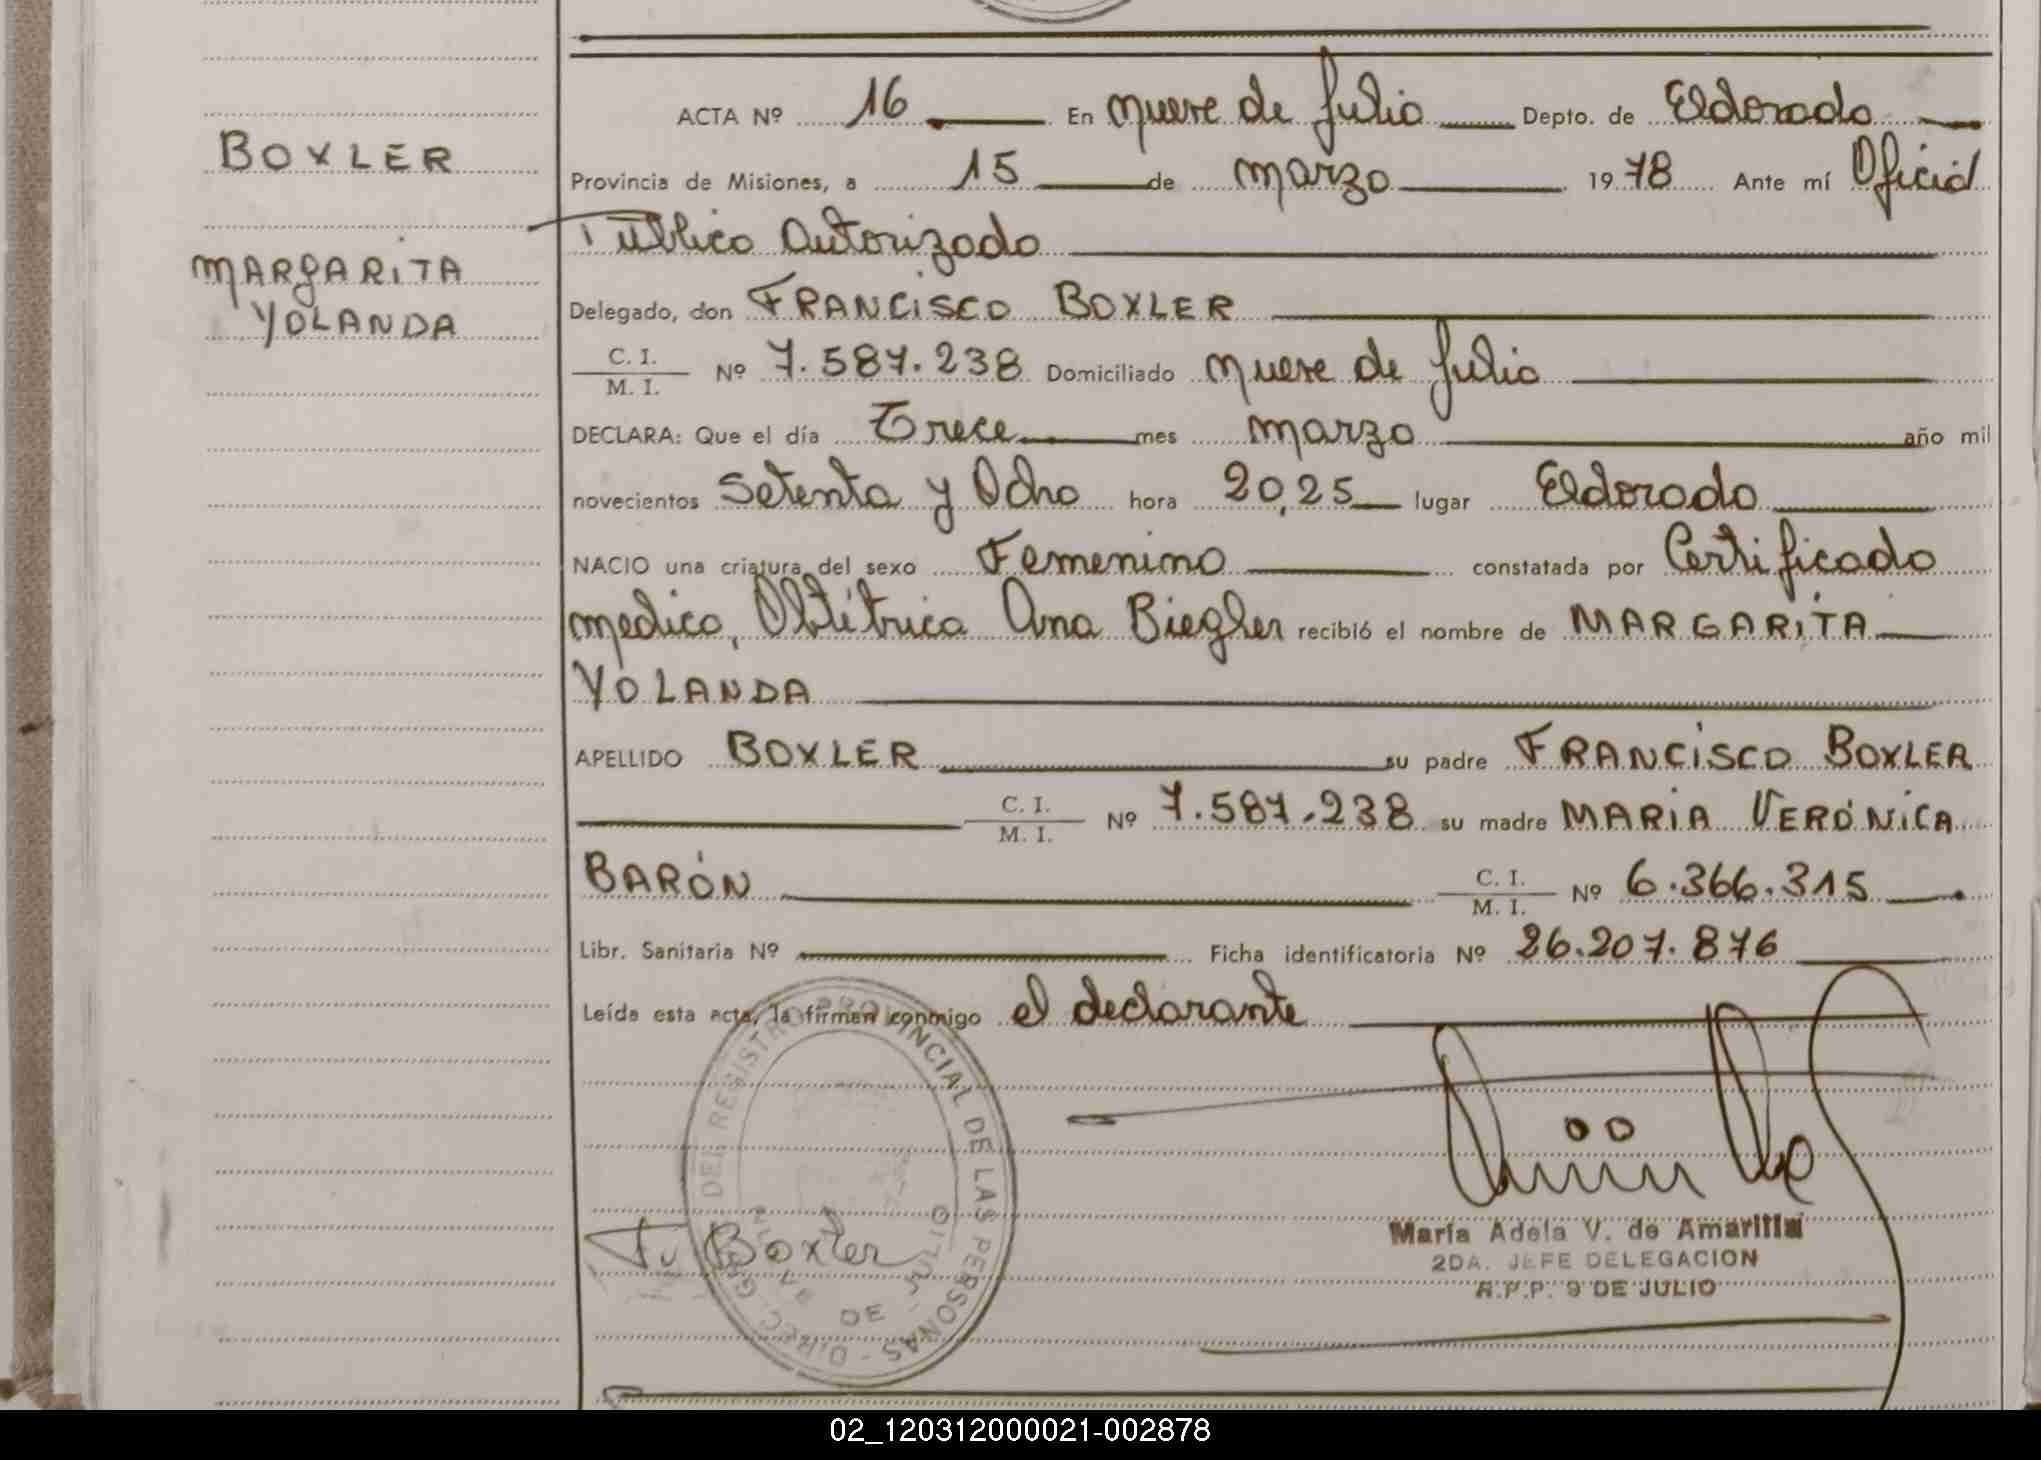 BOXLER
MARGARITA
YOLANDA
ACTA Nº 16 En nueve de Julio Depto. de Eldorado
Provincia de Misiones, a 15 de marzo 1978 Ante mí Oficial
Público Autorizado
Delegado, don FRANCISCO BOXLER
C. I. / M. I. Nº 7.587.238 Domiciliado nueve de Julio
DECLARA: Que el día Trece mes marzo año mil
novecientos Setenta y Ocho hora 20,25 lugar Eldorado
NACIO una criatura del sexo Femenino constatada por Certificado
medico, Obtétrica Ana Biegler recibió el nombre de MARGARITA
YOLANDA
APELLIDO BOXLER su padre FRANCISCO BOXLER
C. I. / M. I. Nº 7.587.238 su madre MARIA VERÓNICA
BARÓN C. I. / M. I. Nº 6.366.315
Libr. Sanitaria Nº Ficha identificatoria Nº 26.207.876
Leída esta acta, la firman conmigo el declarante
DIREC. GRAL. DEL REGISTRO PROVINCIAL DE LAS PERSONAS
DE JULIO
F. Boxler
María Adela V. de Amarilla
2DA. JEFE DELEGACION
R.P.P. 9 DE JULIO
02_120312000021-002878